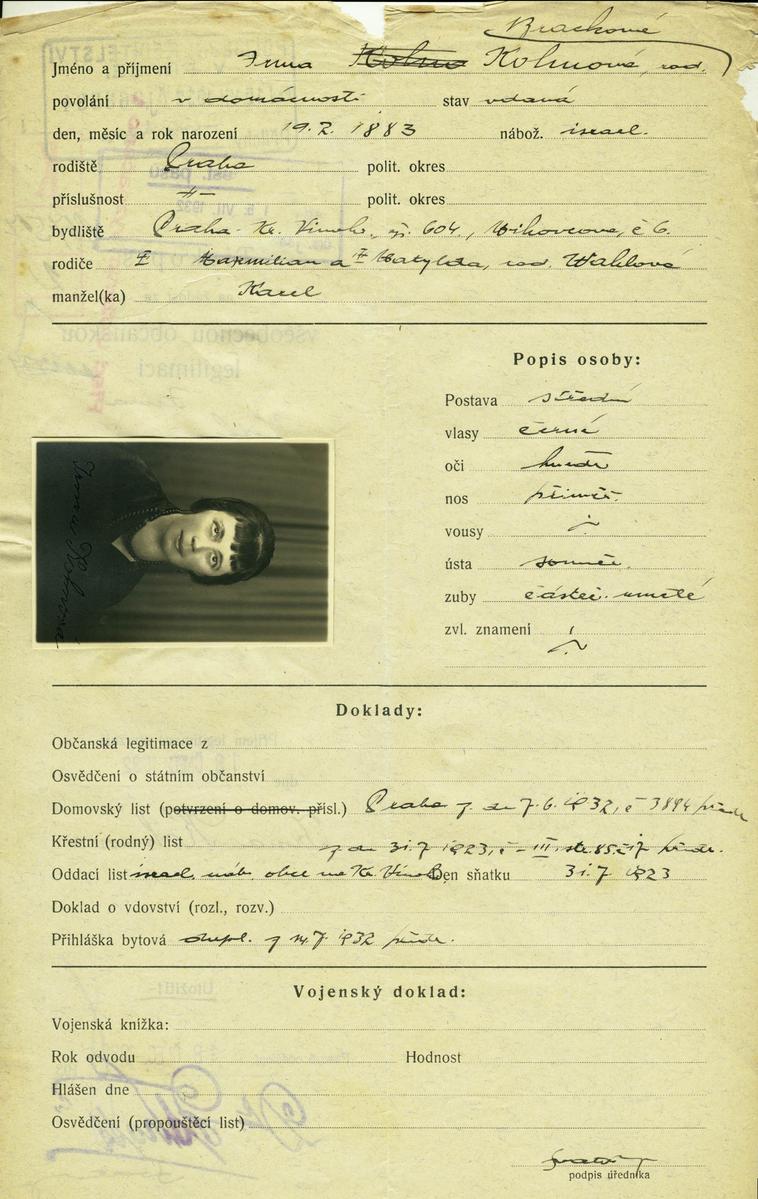 Brachové
Jméno a příjmení Irma Kohnová, roz.
povolání v domácnosti stav vdaná
den, měsíc a rok narození 19. 2. 1883 nábož. israel.
rodiště Praha polit. okres
příslušnost -"- polit. okres
bydliště Praha - Kr. Vinohr., čp. 604.
rodiče Maxmilian a Matylda, roz. Wahlová
manžel(ka) Karel
Popis osoby:
Postava střední
vlasy černé
oči hnědé
nos přiměř.
vousy
ústa souměr.
zuby částeč. umělé
zvl. znamení
Irma Kohnová
Doklady:
Občanská legitimace z
Osvědčení o státním občanství
Domovský list (potvrzení o domov. přísl.) Praha z dne 7. 6. 1932, č 3894
Křestní (rodný) list
z dne 31. 7 1923, č - III. str. 85 č 17
Oddací list israel. náb. obce na Kr. Vinoh. Den sňatku 31. 7 1923
Doklad o vdovství (rozl., rozv.)
Přihláška bytová z 14. 7 1932
Vojenský doklad:
Vojenská knížka:
Rok odvodu Hodnost
Hlášen dne
Osvědčení (propouštěcí list)
podpis úředníka